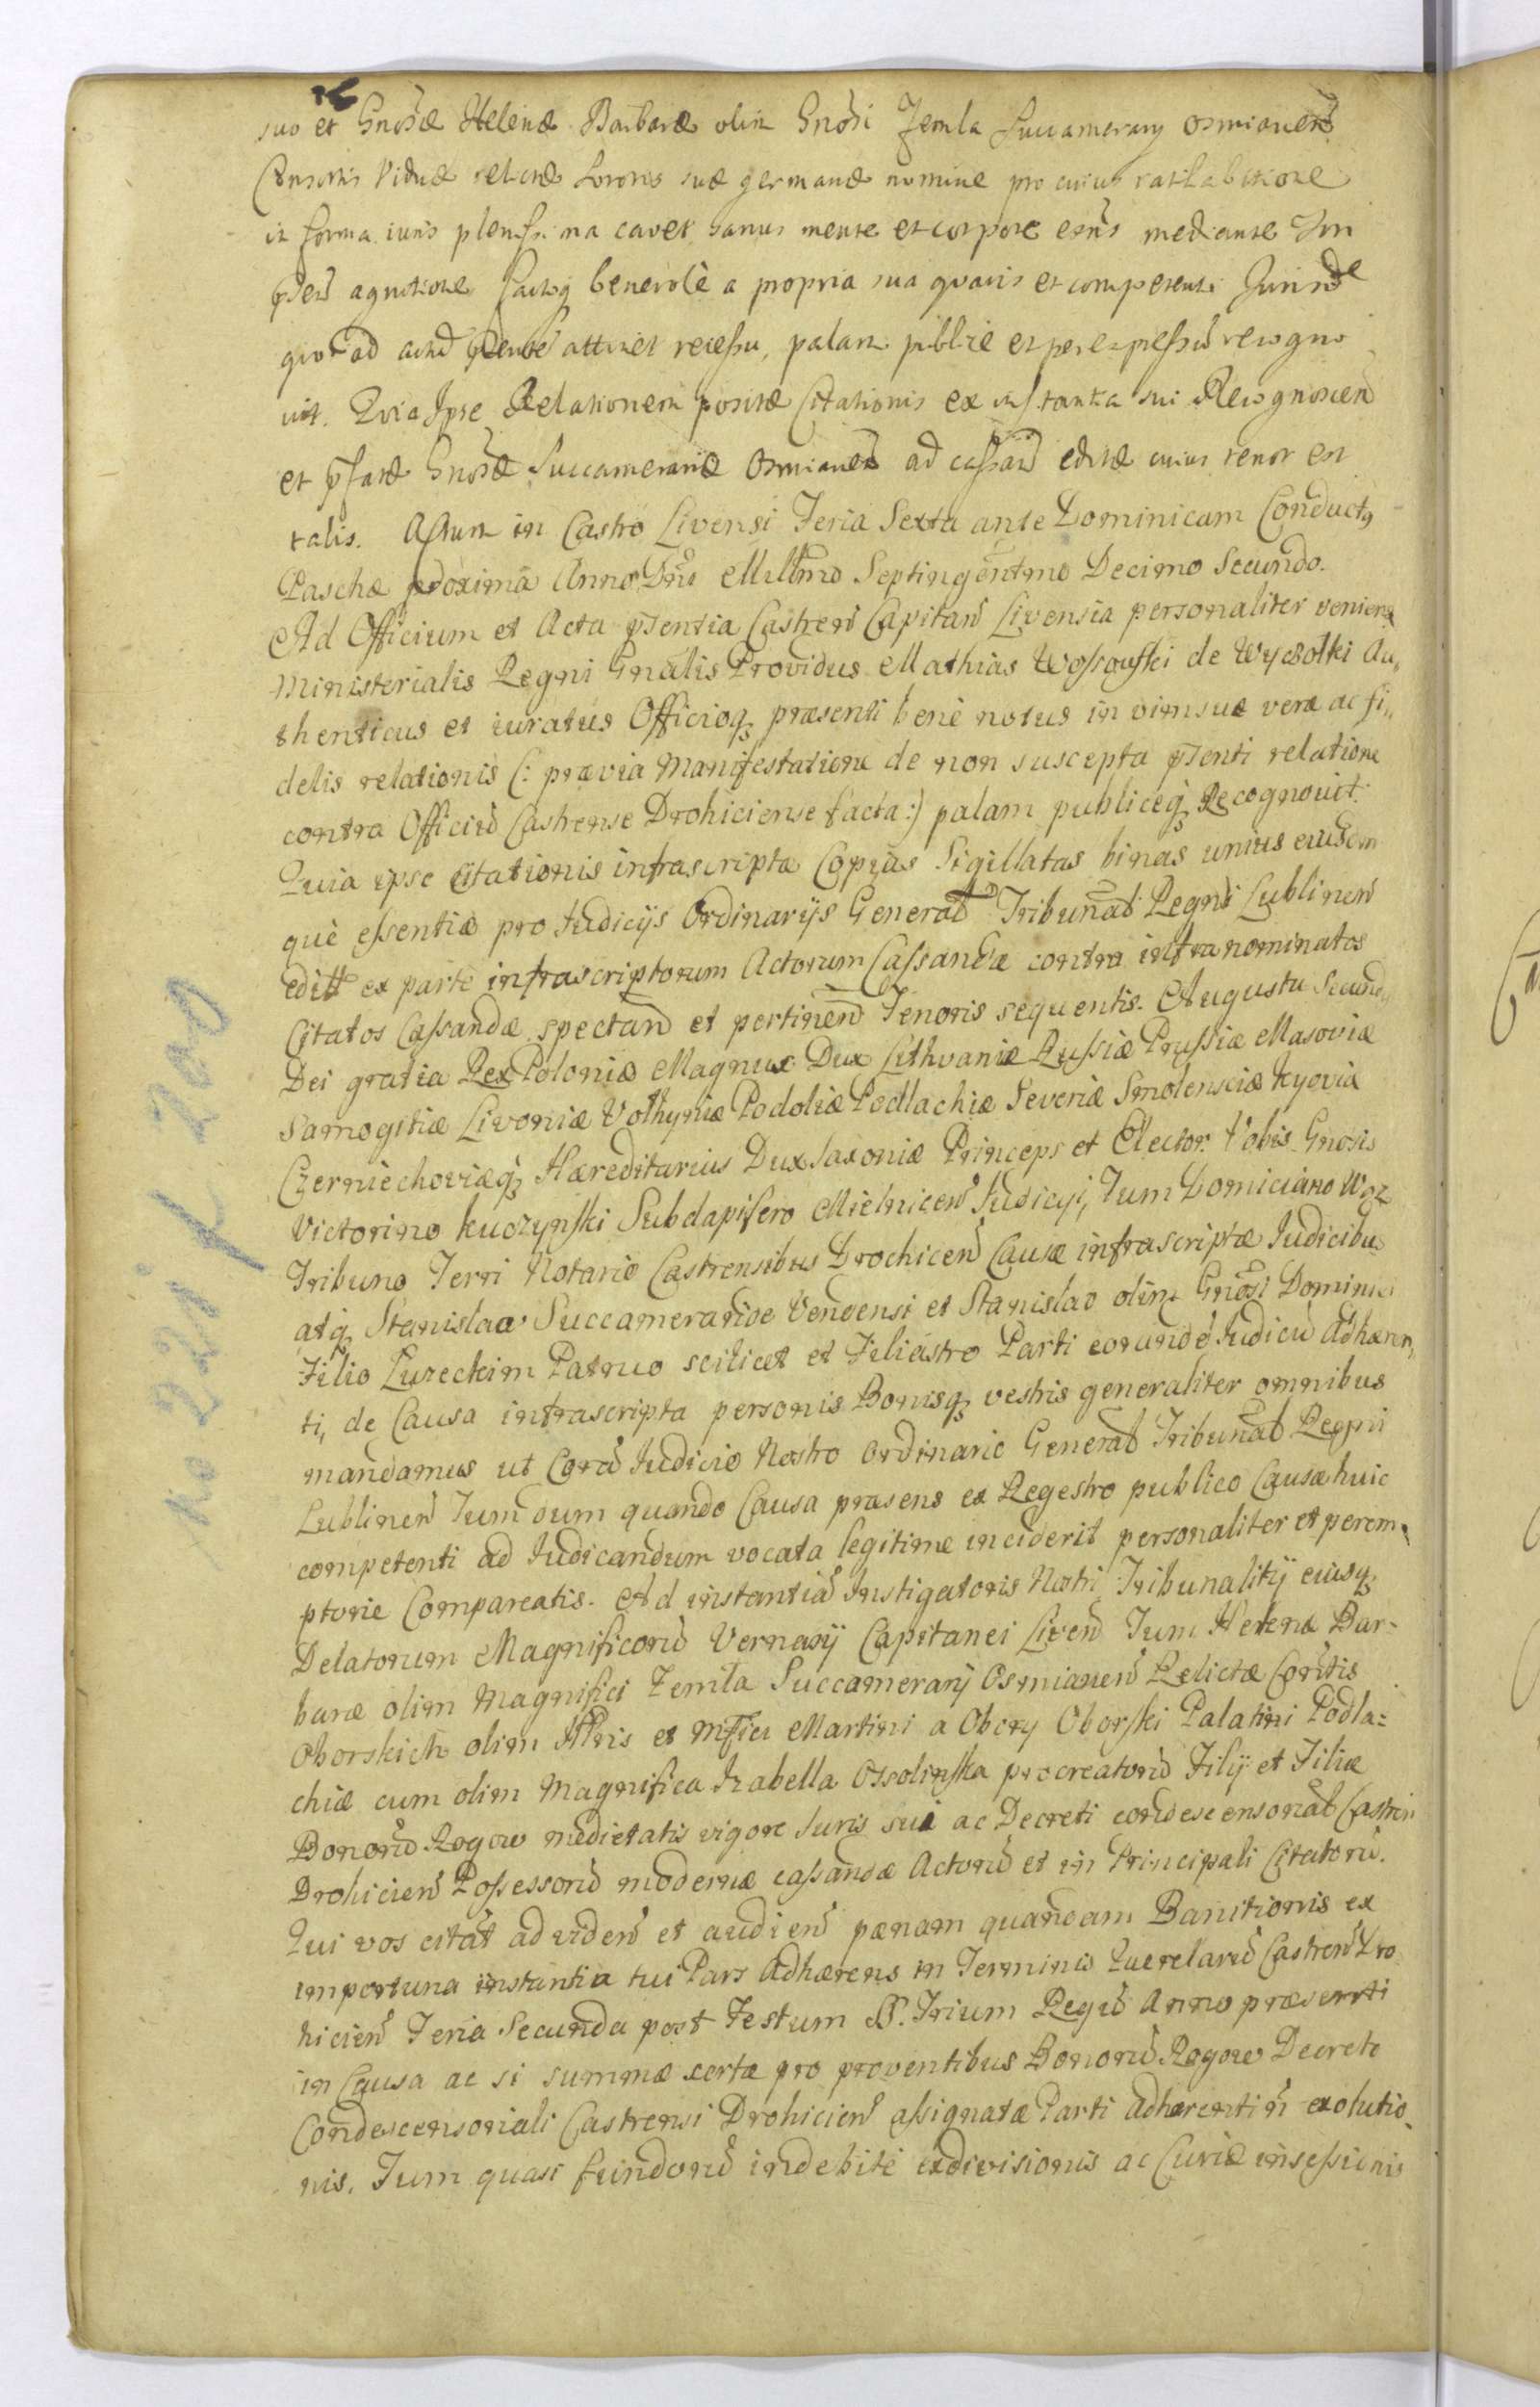 suo et Gnosæ Helenæ Barbaræ olim Gnosi Zemla Succamerary Osmianens
Consortis Viduæ relictæ Sororis suæ germanæ nomine pro cuius ratihabitione
in forma iuris plenissima cavet sanus mente et corpore exns mediante Sui
pñti agnitione factoq benevolè a propria sua quavis et competenti Jurisde
quo ad actũ pñtẽ attinet recessu, palam publie et per expressũ recogno
uit. Quia Ipse Relationem positæ Citationis ex instantia sui Recognoscen
et pfatæ Gnosæ Succamerariæ Osmianen ad cassan editæ cuius tenor est
talis. Actum in Castro Livensi Feria Sexta ante Dominicam Conductq
Paschæ proxima Anno Dni Millmo Septingentmo Decimo Secundo.
Ad Officium et Acta pñtentia Castren Capitan Livensia personaliter veniens
Ministerialis Regni Gnalis Providus Mathias Wossouski de Wyczołki Au„
thenticus et iuratus Officioq præsenti benè notus in vim suæ veræ ac fi„
delis relationis (: prævia Manifestatione de non suscepta pñti relatione
contra Officiũ Castrense Drohiciense facta :) palam publiceq Recognouit.
Quia ipse Citationis infrascriptæ Copias Sigillatas binas unius eiusdem
què essentiæ pro Judicijs Ordinarijs General Tribunal Regni Lublinen
editt ex parte infrascriptorum Actorum Cassandæ contra infranominatos
Citatos Cassandæ spectan et pertinen Tenoris sequentis. Augustu Secund„
Dei gratia Rex Poloniæ Magnus Dux Lithvaniæ Russiæ Prussiæ Masoviæ
Samogitiæ Livoniæ Volhyniæ Podoliæ Podlachiæ Severiæ Smolensciæ Kyoviæ
Czerniechoviæq Hæreditarius Dux Saxoniæ Princeps et Elector. Vobis Gnosis
Victorino Kuczynski Subdapifero Mielnicen Judicij, Tum Domiciano Woż
Tribuno Terri Notario Castrensibus Drochicen Causæ infrascriptæ Judicibus
atq Stanislao Succamerarioe Vendensi et Stanislao olim Gnosi Dominici
Filio Zuzeckim Patruo scilicet et Filiastro Parti eorundẽ Judicũ Adhæren„
ti, de Causa infrascripta personis Bonisq vestris generaliter omnibus
mandamus ut Corã Judicio Nostro Ordinario General Tribunal Regni
Lublinen Tum dum quando Causa præsens ex Regestro publico Causæ huic
competenti ad Judicandum vocata legitime inciderit personaliter et perem„
ptorie Compareatis. Ad instantiã Instigatoris Nostri Tribunalitij eiusq
Delatorum Magnificorũ Vernarij Capitanei Liven Tum Helenæ Bar-
baræ olim Magnifici Zemła Succamerarij Osmianen Relictæ Consortis
Oborskich olim Illtris et Mfici Martini a Obory Oborski Palatini Podla=
chiæ cum olim Magnifica Izabella Ossolinska procreatorũ Filij et Filiæ
Bonorũ Rogow medietatis vigore Juris sui ac Decreti condescensorial Castren
Drohicien Possessorũ modernæ cassandæ Actorũ et in Principali Citatorũ.
Qui vos citat ad viden et audien pænam quandam Banitionis ex
importuna instantia tui Pars Adhærens in Terminis Querelarũ Castren Dro
hicien Feria Secunda post Festum S. Trium Regũ Anno præsenti
in Causa ac si summæ certæ pro proventibus Bonorũ Rogow Decreto
Condescensoriali Castrensi Drohicien assignatæ Parti Adhærenti ñ exolutio„
nis. Tum quasi fundorũ indebitè exdivisionis ac Curiæ insessionis
No 221 f 200